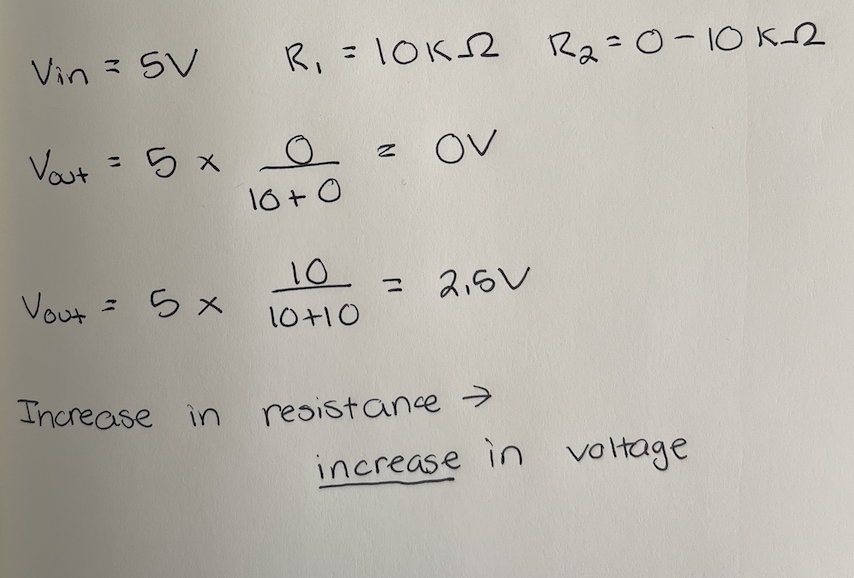 Vin = 5V R₁ = 10KΩ R₂ = 0 - 10 KΩ
Vout = 5 × 0/(10+0) = 0V
Vout = 5 × 10/(10+10) = 2.5V
Increase in resistance →
increase in voltage